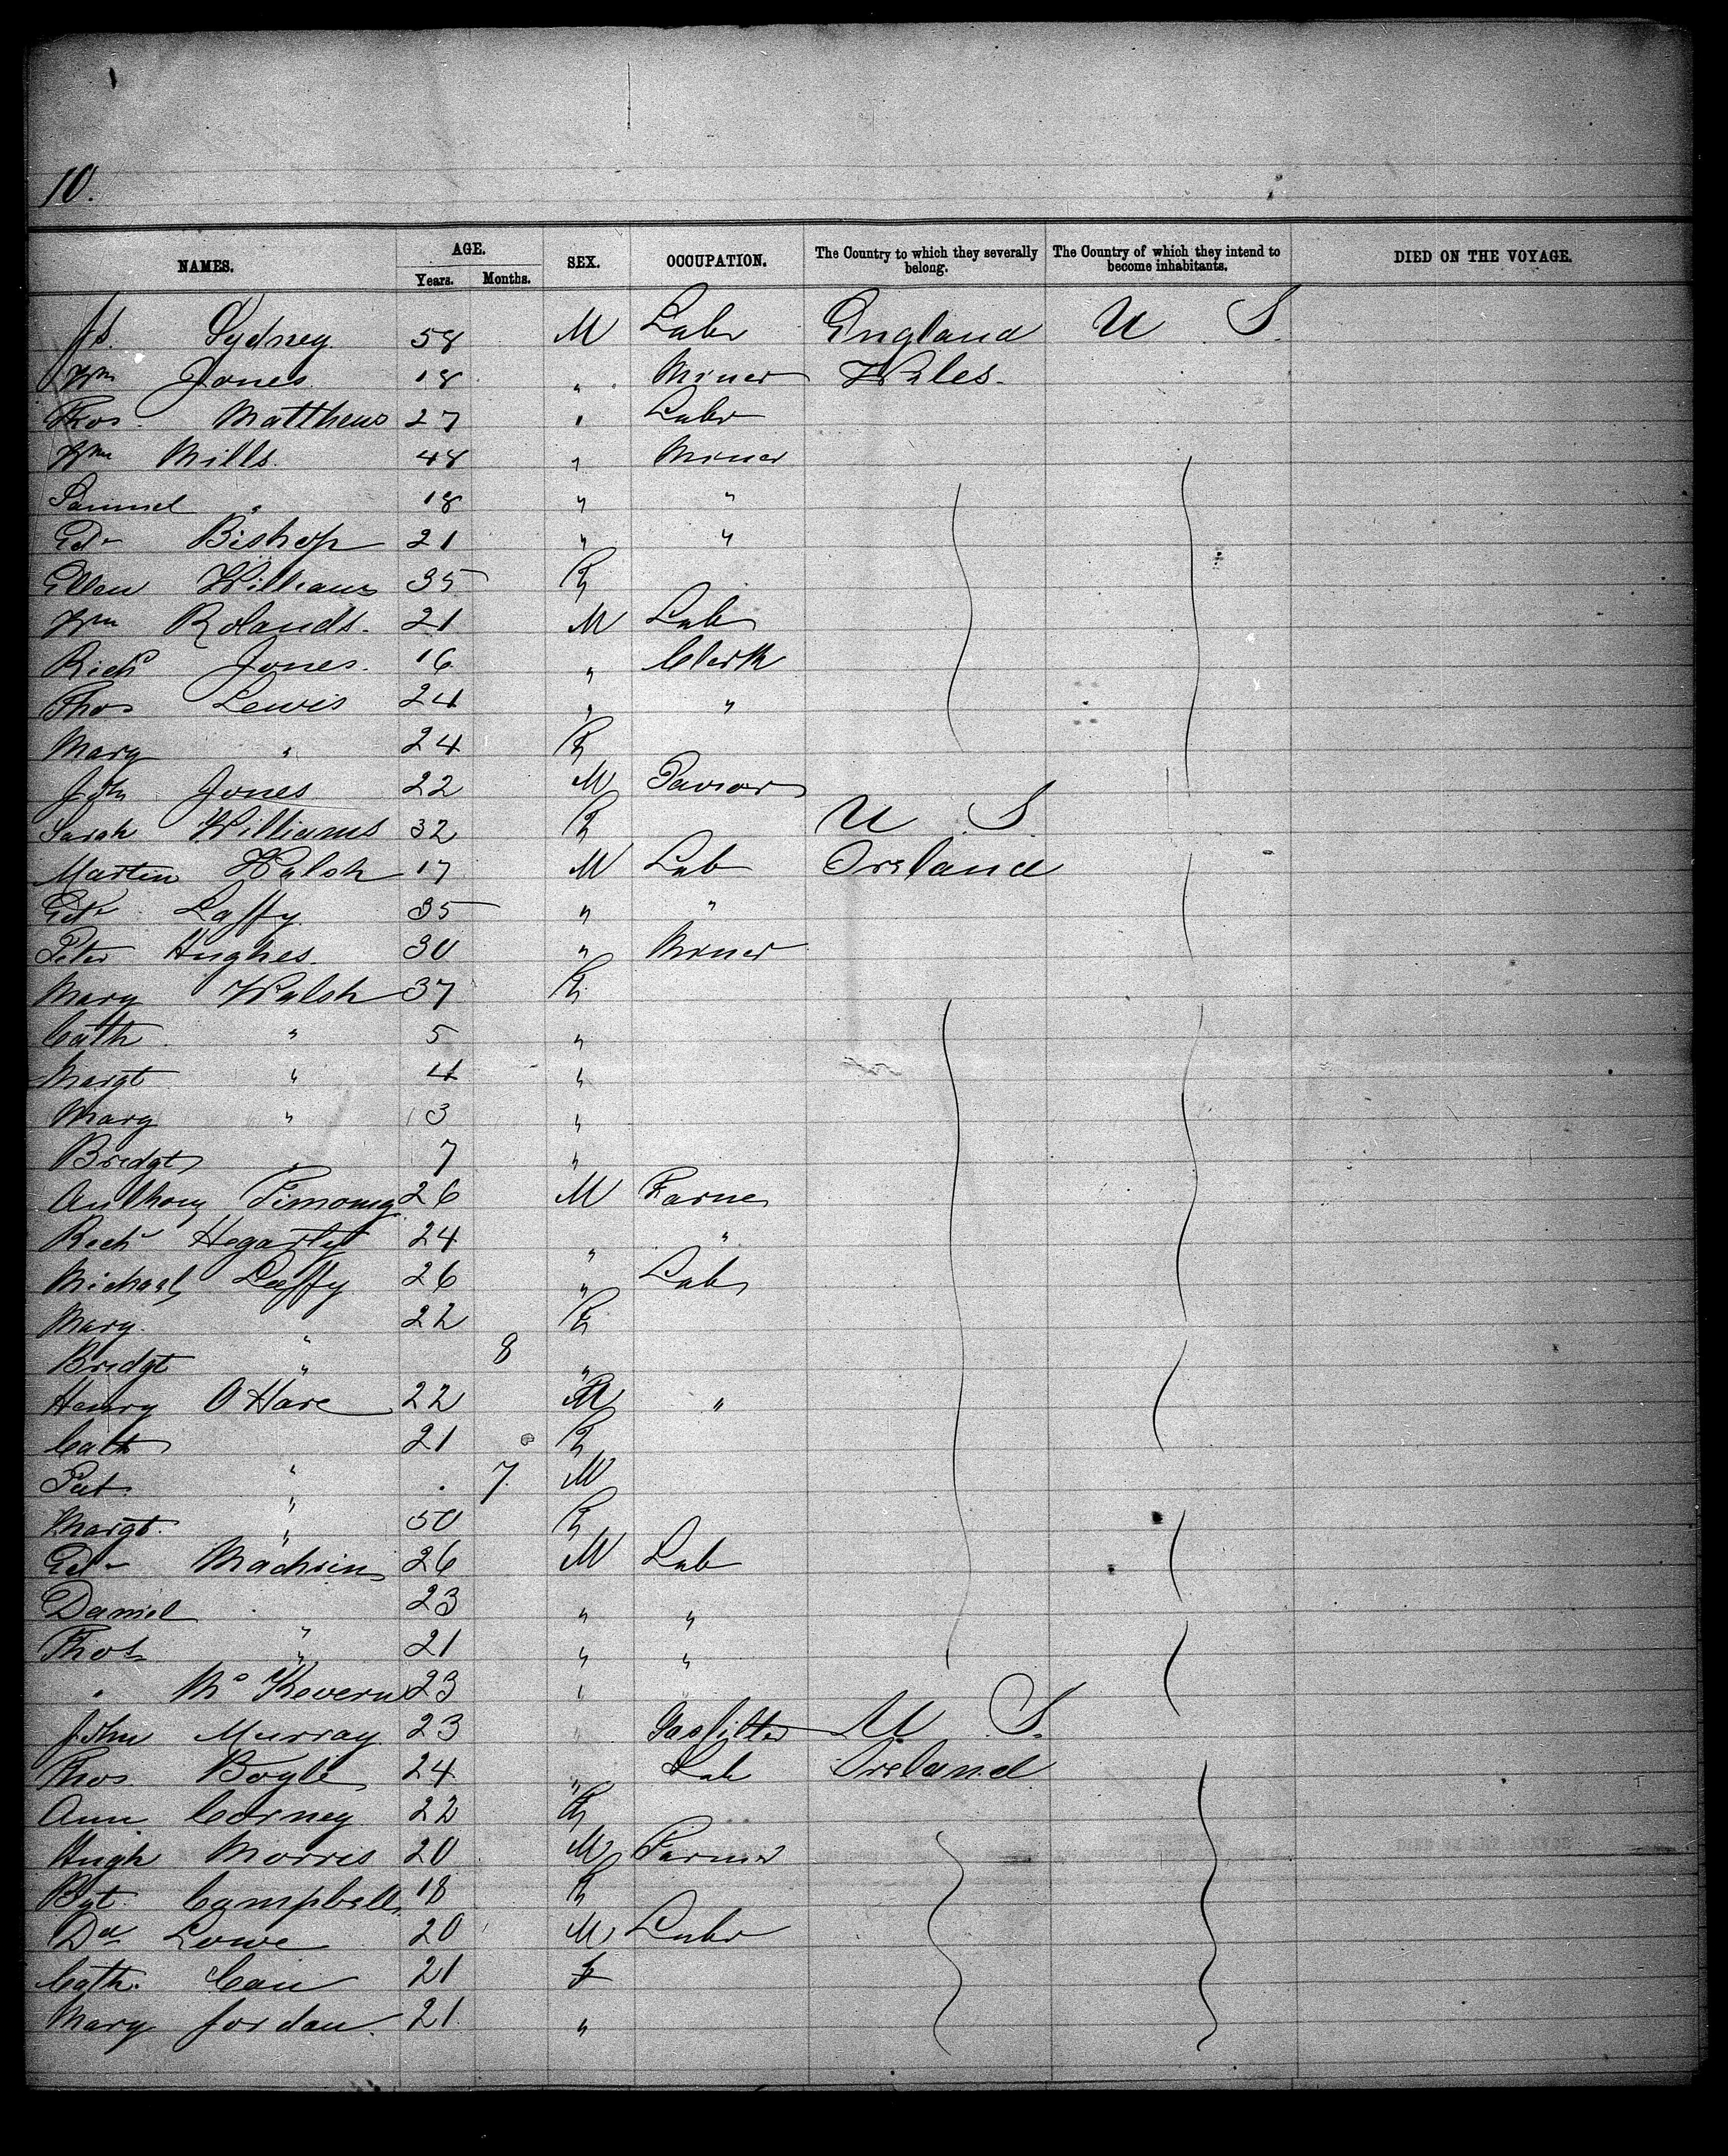 10.
NAMES. AGE. Years. Months. SEX. OCCUPATION. The Country to which they severally belong. The Country of which they intend to become inhabitants. DIED ON THE VOYAGE.
Js. Sydney 58 M Labr England U S.
Wm Jones 18 " Miner Wales.
Thos Matthews 27 " Labr
Wm Mills 48 " Miner
Samuel " 18 " "
Edw Bishop 21 " "
Ellen Williams 35 F
Wm Rolands 21 M Lab
Richd Jones 16 " Clerk
Thos Lewis 24 " "
Mary " 24 F
John Jones 22 M
Sarah Williams 32 F U S.
Martin Walsh 17 M Lab Ireland
Edw Laffy 35 " "
Peter Hughes 30 " Miner
Mary Walsh 37 F
Cath " 5 "
Margt " 4 "
Mary " 3 "
Bridgt " 7 "
Anthony Timony 26 M Farmer
Richd Hegarty 24 " "
Michael Laffy 26 " Lab
Mary " 22 F
Bridgt " 8 "
Henry O'Hare 22 M "
Cath " 21 F
Pat " 7 M
Margt " 50 F
Edw 26 M Lab
Daniel " 23 " "
Thos " 21 " "
" McKevern 23 "
John Murray 23 " Gasfitter U S.
Thos Boyle 24 " Lab Ireland
Ann Corney 22 F
Hugh Morris 20 M Farmer
Bgt Campbell 18 F
Dd Lowe 20 M Labr
Cath. Cain 21 F
Mary Jordan 21 "